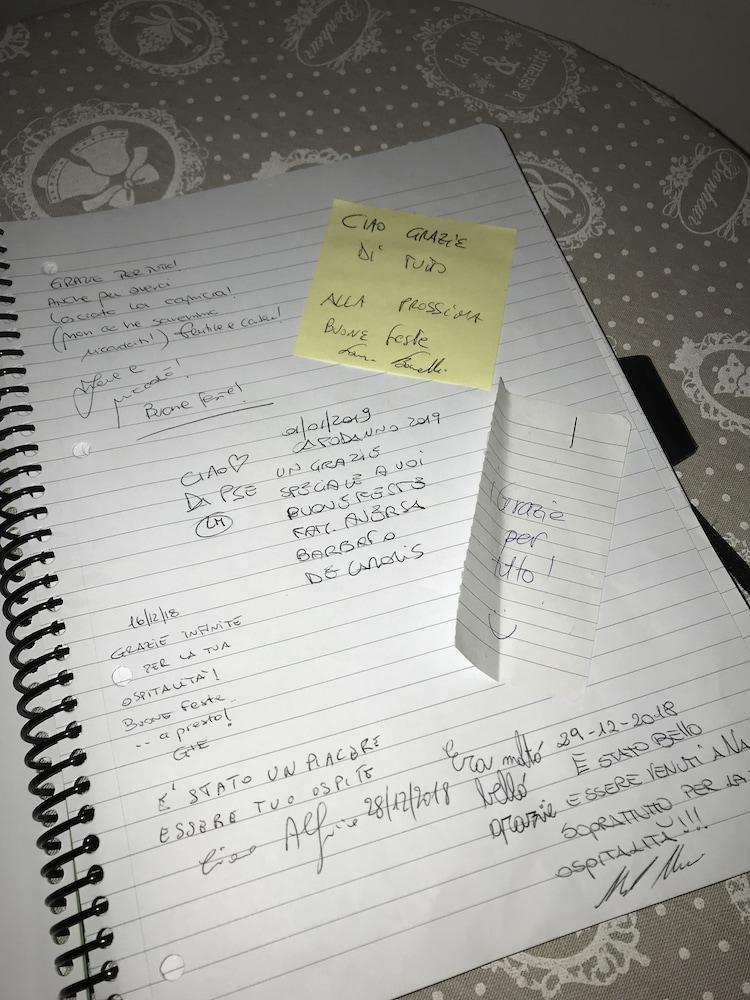 Bonheur
la joie
&
la sérénité
Bonheur
GRAZIE PER TUTTO!
Anche per averci
lasciato la
(non ce ne saremmo
Buone feste!
CIAO GRAZIE
DI TUTTO
ALLA PROSSIMA
BUONE feste
01/01/2019
CAPODANNO 2019
CIAO♡ UN GRAZIE
DA PSE SPECIALE A VOI
LM BUONE FESTE
FAM. AVERSA
BARBARO
DE CAROLIS
Grazie
per
tutto!
16/12/18
GRAZIE INFINITE
PER LA TUA
OSPITALITÀ!
Buone feste
-- a presto!
E' STATO UN PIACERE
ESSERE TUO OSPITE
Ciao 28/12/2018
Era molto
bello
grazie
29-12-2018
E STATO BELLO
ESSERE VENUTI
SOPRATTUTO PER LA
OSPITALITÀ!!!